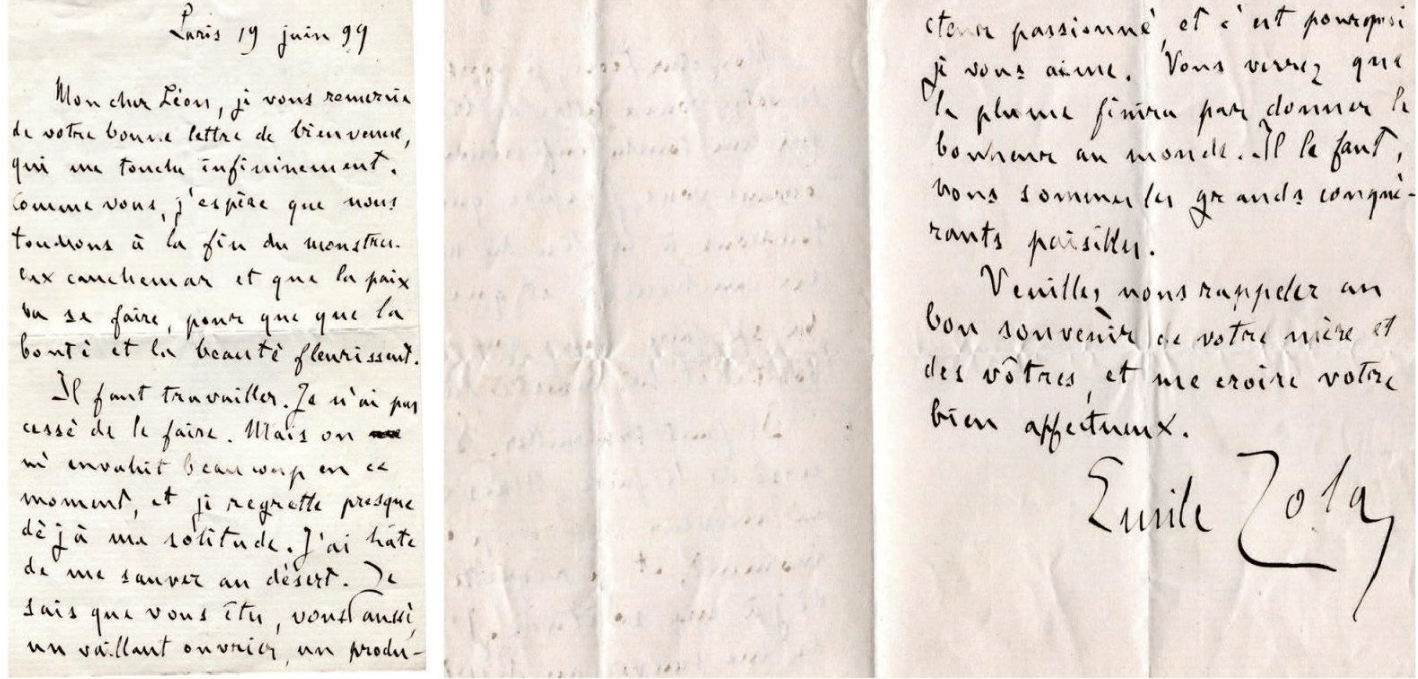 Paris 19 juin 99
Mon cher Léon, je vous remercie
de votre bonne lettre de bienvenue,
qui me touche infininement.
Comme vous, j'espère que nous
touchons à la fin du monstru-
eux cauchemar et que la paix
va se faire, pour que que la
bonté et la beauté fleurissent.
Il faut travailler. Je n'ai pas
cessé de le faire. Mais on
m'envahit beaucoup en ce
moment, et je regrette presque
déjà ma solitude. J'ai hâte
de me sauver au désert. Je
sais que vous êtes, vous aussi,
un vaillant ouvrier, un produ-
cteur passionné, et c'est pourquoi
je vous aime. Vous verrez que
la plume finira par donner le
bonheur au monde. Il le faut,
nous sommes les grands conqué-
rants paisibles.
Veuillez nous rappeler au
bon souvenir de votre mère et
des vôtres, et me croire votre
bien affectueux.
Emile Zola